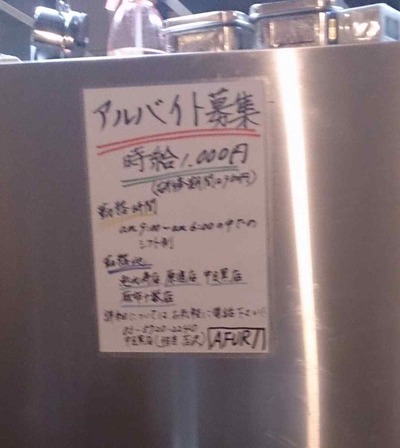 アルバイト募集
時給1.000円
(研修期間は900円)
勤務時間
am 9:00〜am 6:00の中での
シフト制
勤務地
恵比寿店 原宿店 中目黒店
麻布十番店
詳細については お気軽に電話下さい!
中目黒店(担当
AFURI